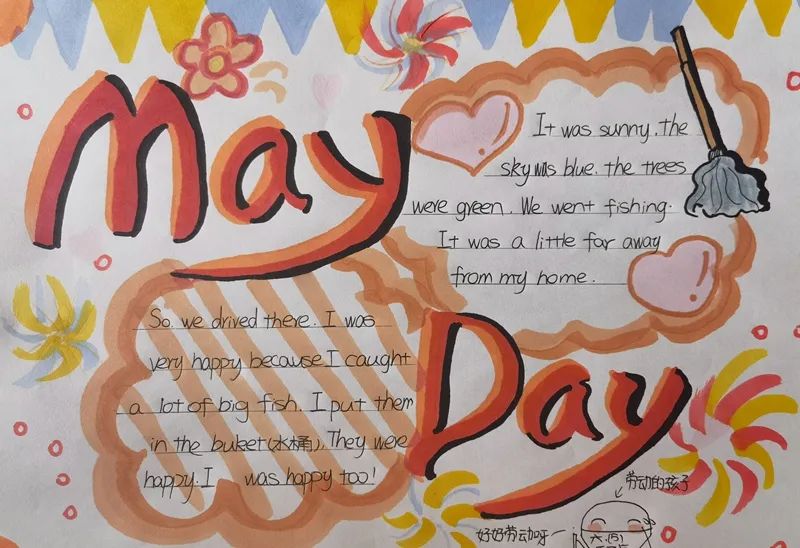 May
It was sunny. the
sky was blue. the trees
were green. We went fishing.
It was a little far away
from my home.
So. we drived there. I was
very happy because I caught
a lot of big fish. I put them
in the buket(水桶). They were
happy. I was happy too!
Day
劳动的孩子
好好劳动呀
六.(5)